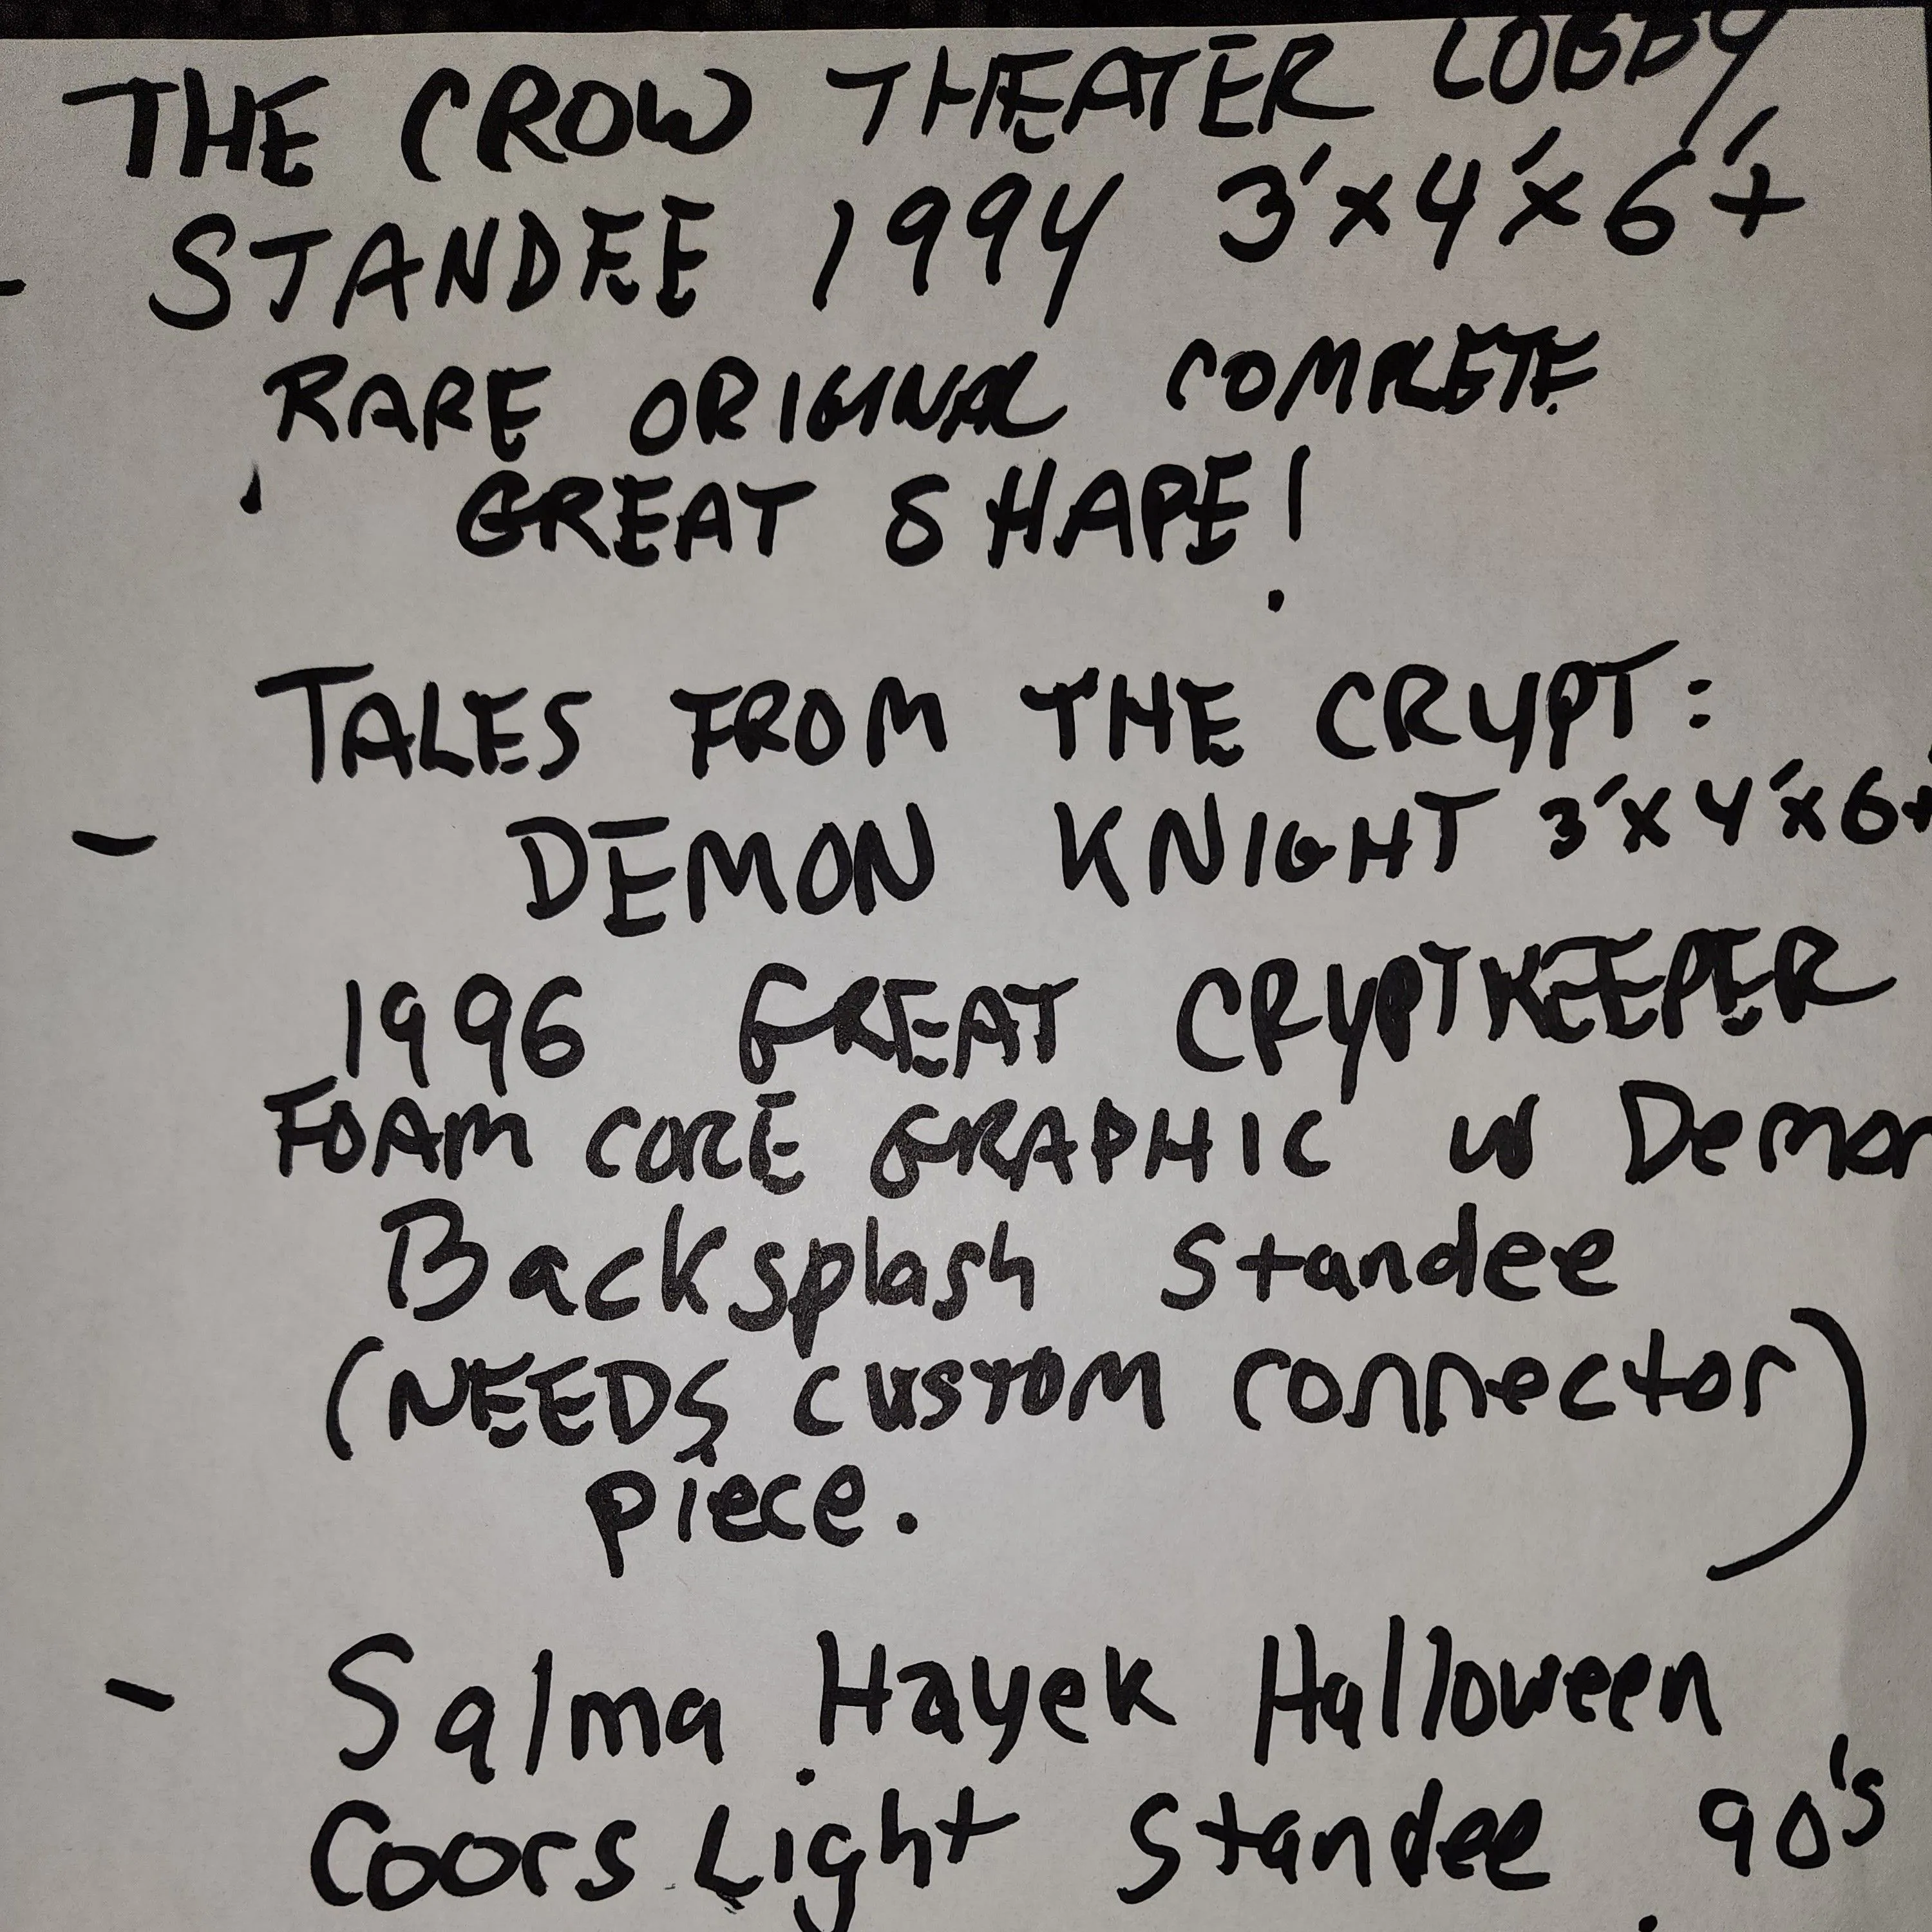 THE CROW THEATER LOBBY
- STANDEE 1994 3'x4'x6'+
RARE ORIGINAL COMPLETE
GREAT SHAPE!
TALES FROM THE CRYPT:
- DEMON KNIGHT 3'x4'x6+
1996 GREAT CRYPTKEEPER
FOAM CORE GRAPHIC w Demon
Backsplash Standee
(NEEDS CUSTOM connector)
piece.
- Salma Hayek Halloween
Coors Light Standee 90's